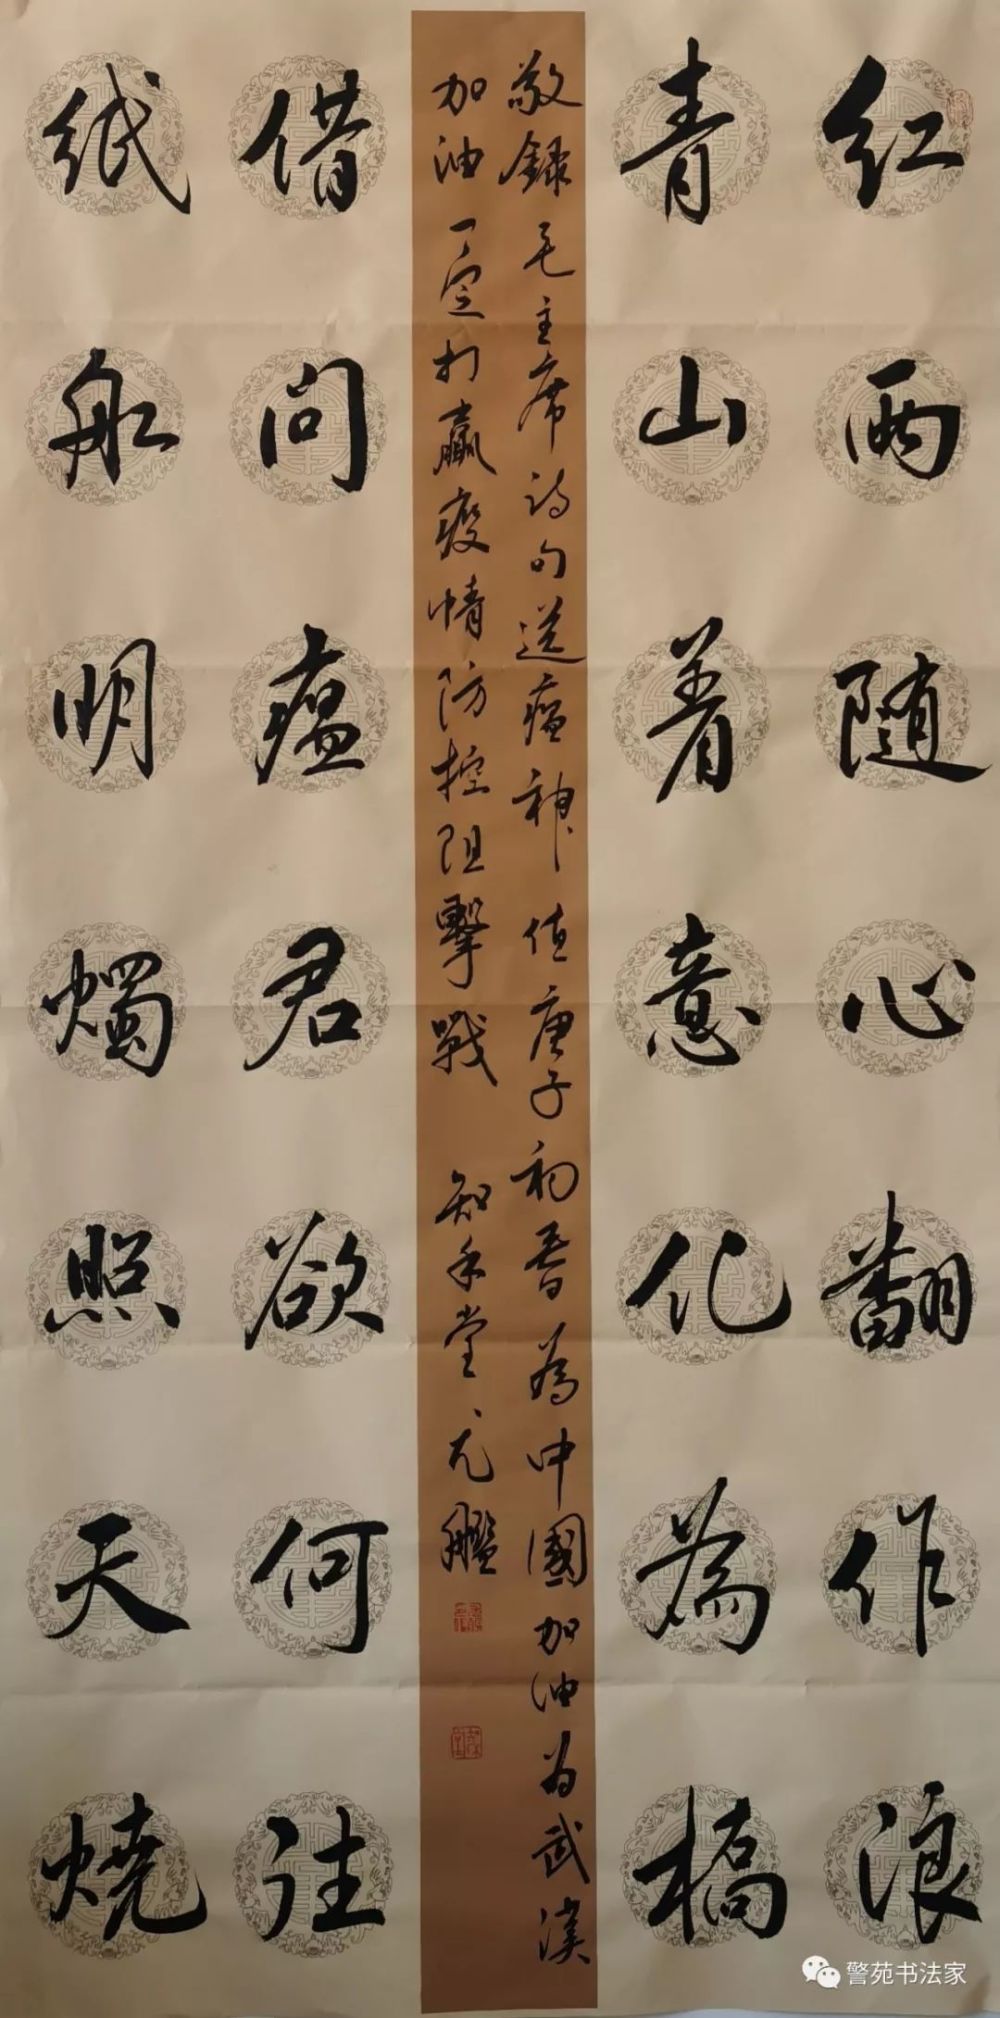 红雨随心翻作浪
青山着意化为橋
敬録毛主席诗句送瘟神值庚子初春为中國加油为武漢
加油一定打赢疫情防控阻擊戰 知年堂元艦
借问瘟君欲何往
纸船明燭照天燒
警苑书法家